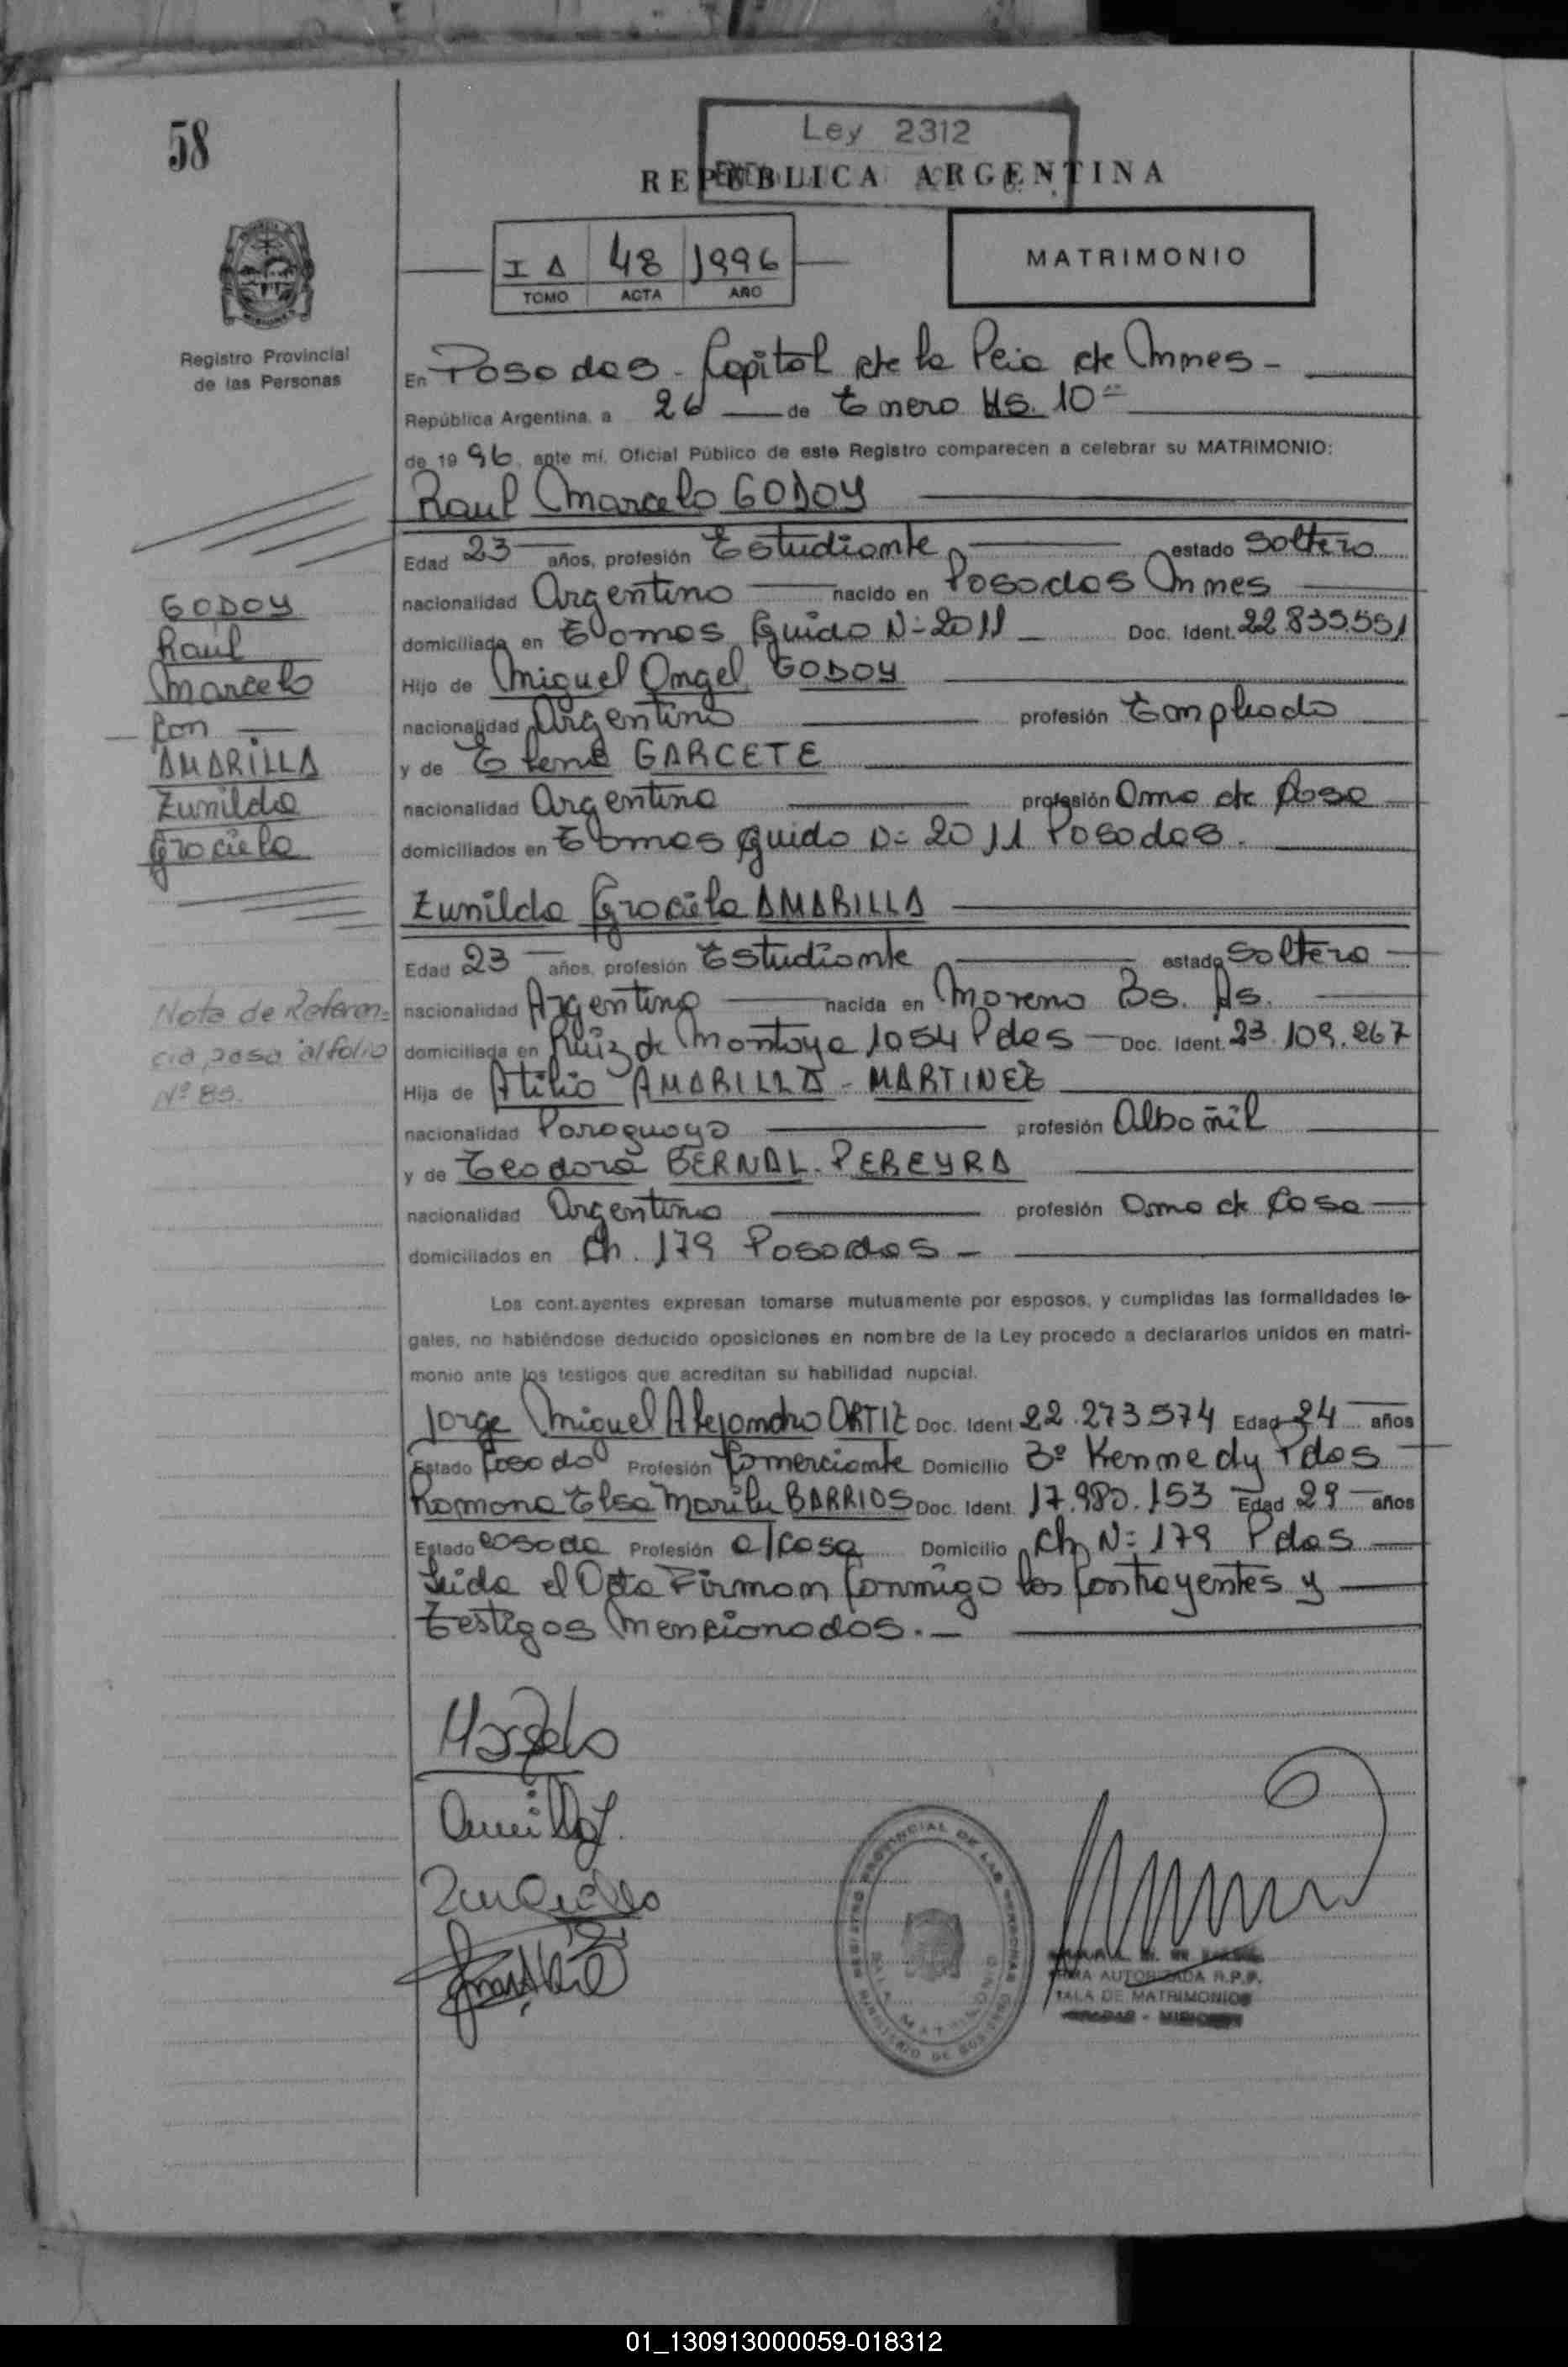 58
Ley 2312
REPUBLICA ARGENTINA
I A 48 1996
TOMO ACTA AÑO
MATRIMONIO
Registro Provincial
de las Personas
En Posadas - Capital de la Pcia de Mnes -
República Argentina, a 26 de Enero Hs. 10
de 1996, ante mí, Oficial Público de este Registro comparecen a celebrar su MATRIMONIO:
Raul Marcelo GODOY
Edad 23 años, profesión Estudiante estado Soltero
nacionalidad Argentino nacido en Posadas Mnes
domiciliado en Tomas Guido N= 2011 Doc. Ident. 22.835.551
Hijo de Miguel Angel GODOY
nacionalidad Argentino profesión Empleado
y de Elena GARCETE
nacionalidad Argentina profesión Ama de Casa
domiciliados en Tomas Guido N= 2011 Posadas.
GODOY
Raul
Marcelo
Con
AMARILLA
Zunilda
Graciela
Zunilda Graciela AMARILLA
Edad 23 años, profesión Estudiante estado Soltera
nacionalidad Argentina nacida en Moreno Bs. As.
domiciliada en Ruiz de Montoya 1054 Pdas Doc. Ident. 23.109.267
Hija de Atilio AMARILLA - MARTINEZ
nacionalidad Paraguaya profesión Albañil
y de Teodora BERNAL - PEREYRA
nacionalidad Argentina profesión Ama de Casa
domiciliados en Ch. 179 Posadas -
Nota de Referen-
cia pasa al folio
Nº 85.
Los contrayentes expresan tomarse mutuamente por esposos, y cumplidas las formalidades le-
gales, no habiéndose deducido oposiciones en nombre de la Ley procedo a declararlos unidos en matri-
monio ante los testigos que acreditan su habilidad nupcial.
Jorge Miguel Alejandro ORTIZ Doc. Ident 22.273.574 Edad 24 años
Estado Casado Profesión Comerciante Domicilio Bº Kennedy Pdas
Ramona Elsa Marilu BARRIOS Doc. Ident. 17.980.153 Edad 29 años
Estado casada Profesión a/casa Domicilio Ch N= 179 Pdas
Leida el Acta Firman Conmigo los Contrayentes y
Testigos Mencionados.-
REGISTRO PROVINCIAL DE LAS PERSONAS
FIRMA AUTORIZADA R.P.P.
SALA DE MATRIMONIOS
POSADAS - MISIONES
01_130913000059-018312